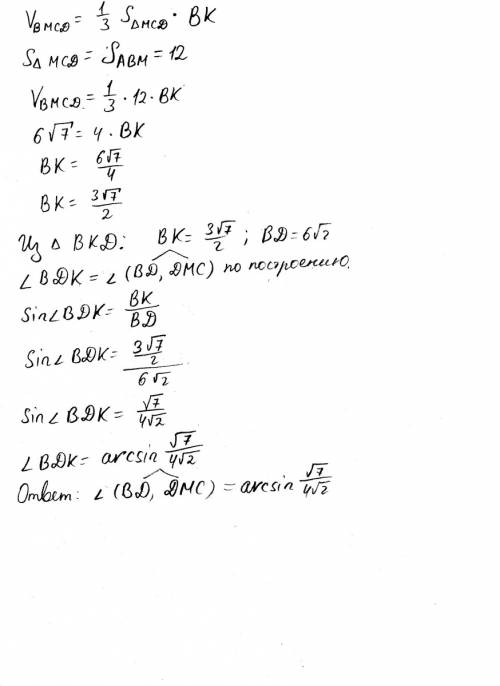 V_BMCD = 1/3 S_ΔMCD · BK
S_Δ MCD = S_ABM = 12
V_BMCD = 1/3 · 12 · BK
6√7 = 4 · BK
BK = 6√7/4
BK = 3√7/2
Из Δ BKD: BK = 3√7/2 ; BD = 6√2
∠ BDK = ∠ (BD, DMC) по построению.
Sin∠ BDK = BK/BD
Sin∠ BDK = (3√7/2)/(6√2)
Sin∠ BDK = √7/4√2
∠ BDK = arcsin √7/4√2
Ответ: ∠ (BD, DMC) = arcsin √7/4√2